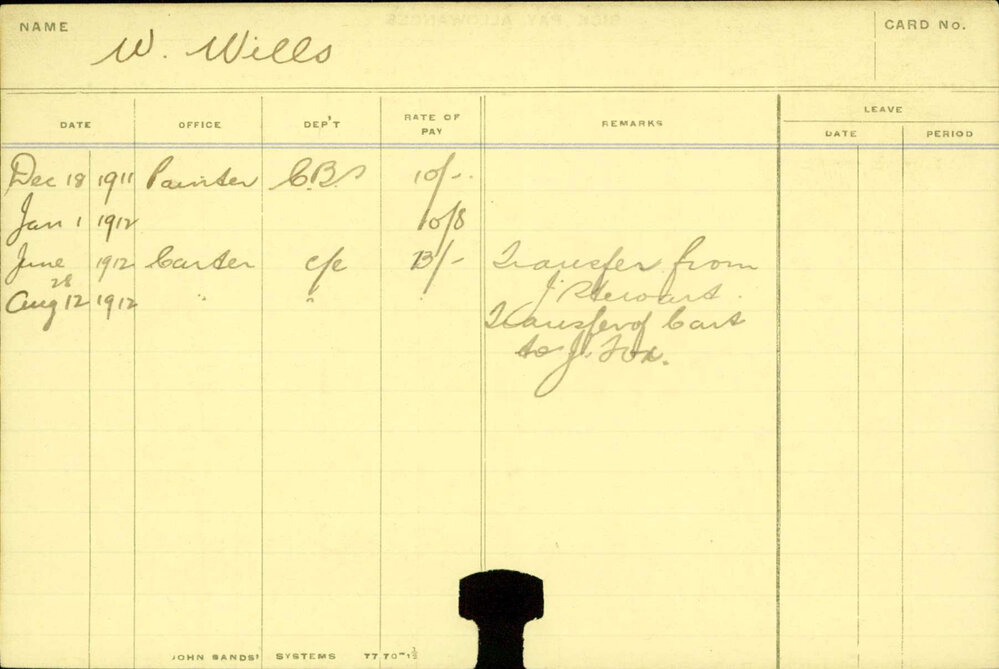 NAME W. Wills CARD No.
LEAVE
DATE OFFICE DEP'T RATE OF PAY REMARKS DATE PERIOD
Dec 18 1911 Painter C.B.S 10/-
Jan 1 1912 10/8
June 28 1912 Carter c/c 13/- Transfer from
J. Stewart.
Aug 12 1912 " " " Transfer of Cart
to J. Fox.
JOHN SANDS' SYSTEMS 77.70-1½